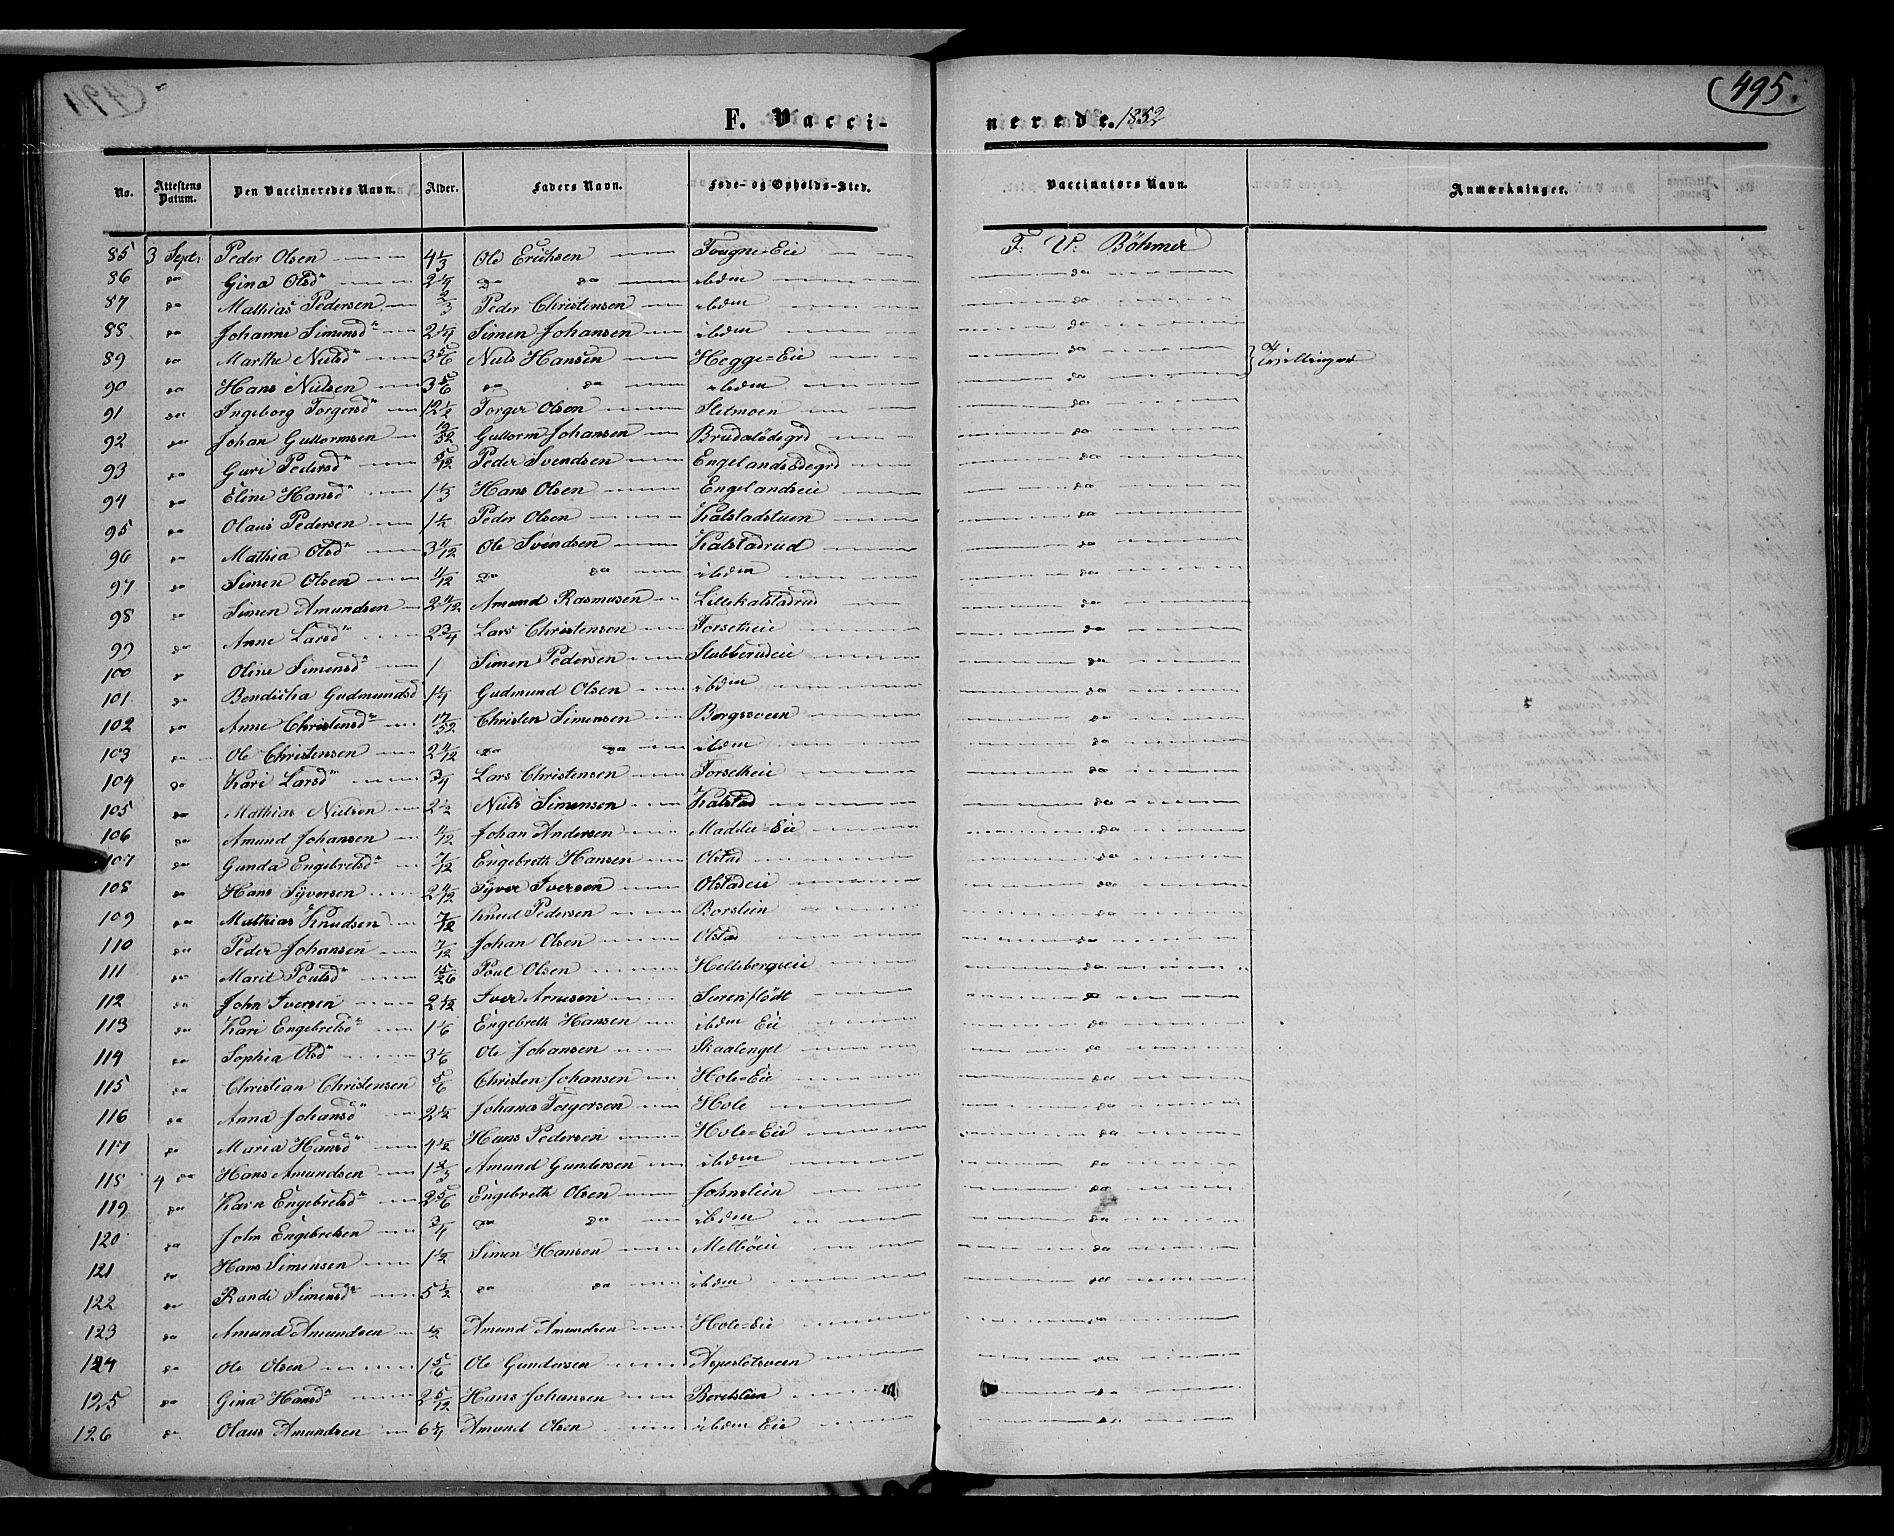 495.
F. Vacci- nerede. 1852
No. Attestens Datum. Den Vaccineredes Navn. Alder. Faders Navn. Føde- og Opholds-Sted. Vaccinators Navn. Anmærkninger.
85 3 Sept: Peder Olsen 4 1/3 Ole Erichsen Fougne=Eie F: V: Böhmer
86 do Gina Olsdr 2 1/4 Do do ibdm do
87 do Mathias Pedersen 2/3 Peder Christensen ibdm do
88 do Johanne Simensdr 2 1/4 Simen Johansen ibdm do
89 do Marthe Nielsdr 3 5/6 Niels Hansen Hegge=Eie do } Tvillinger
90 do Hans Nielsen 3 5/6 do do ibdm do
91 do Ingeborg Torgersdr 12 1/2 Torger Olsen Sletmoen do
92 do Johan Guttormsen 19/52 Guttorm Johansen Brudalödegrd do
93 do Guri Pedersdr 5/12 Peder Svendsen Engelandsödegrd do
94 do Eline Hansdr 1 1/3 Hans Olsen Engelandseie do
95 do Olaus Pedersen 1 1/2 Peder Olsen Kalstadstuen do
96 do Mathia Olsdr 3 11/12 Ole Svendsen Kalstadrud do
97 do Simen Olsen 11/12 Do do ibdm do
98 do Simen Amundsen 2 11/12 Amund Rasmusen Lillekalstadrud do
99 do Anne Larsdr 2 3/4 Lars Christensen Forsetheie do
100 do Oline Simensdr 1 Simen Pedersen Stubberudeie do
101 do Bendicha Gudmundsdr 1 1/4 Gudmund Olsen ibdm do
102 do Anne Christensdr 17/52 Christen Simensen Borgssveen do
103 do Ole Christensen 2 4/12 do do ibdm do
104 do Kari Larsdr 3/4 Lars Christensen Forsetheie do
105 do Mathias Nielsen 2 1/2 Niels Simensen Kalstad do
106 do Amund Johansen 11/12 Johan Andersen Maddie=Eie do
107 do Gunda Engebretsdr 7/12 Engebreth Hansen Olstad do
108 do Hans Syversen 2 4/12 Syver Iversen Olstadeie do
109 do Mathias Knudsen 7/12 Knud Pedersen Borslien do
110 do Peder Johansen 7/12 Johan Olsen Olstad do
111 do Marit Poulsdr 15/26 Poul Olsen Heltebergseie do
112 do John Iversen 2 1/12 Iver Arnesen Surenflödt do
113 do Kari Engebretsdr 1 1/6 Engebreth Hansen ibdm Eie do
114 do Sophia Olsdr 3 1/6 Ole Johansen Skaalenget do
115 do Christian Christensen 5/6 Christen Johansen Hole=Eie do
116 do Anna Johansdr 2 1/2 Johans Torgersen Hole do
117 do Maria Hansdr 4 1/2 Hans Pedersen Hole=Eie do
118 4 do Hans Amundsen 1 2/3 Amund Gundersen ibdm do
119 do Karn Engebretsdr 2 5/6 Engebreth Olsen Johnslien do
120 do John Engebretsen 3/4 do do ibdm do
121 do Hans Simensen 1 1/2 Simen Hansen Melböeie do
122 do Randi Simensdr 5 1/2 do do ibdm do
123 do Amund Amundsen 1/2 Amund Amundsen Hole=Eie do
124 do Ole Olsen 1 5/6 Ole Gundersen Aspesletsveen do
125 do Gina Hansdr 2 5/12 Hans Johansen Boretslien do
126 do Olaus Amundsen 6 1/4 Amund Olsen ibdm Eie do